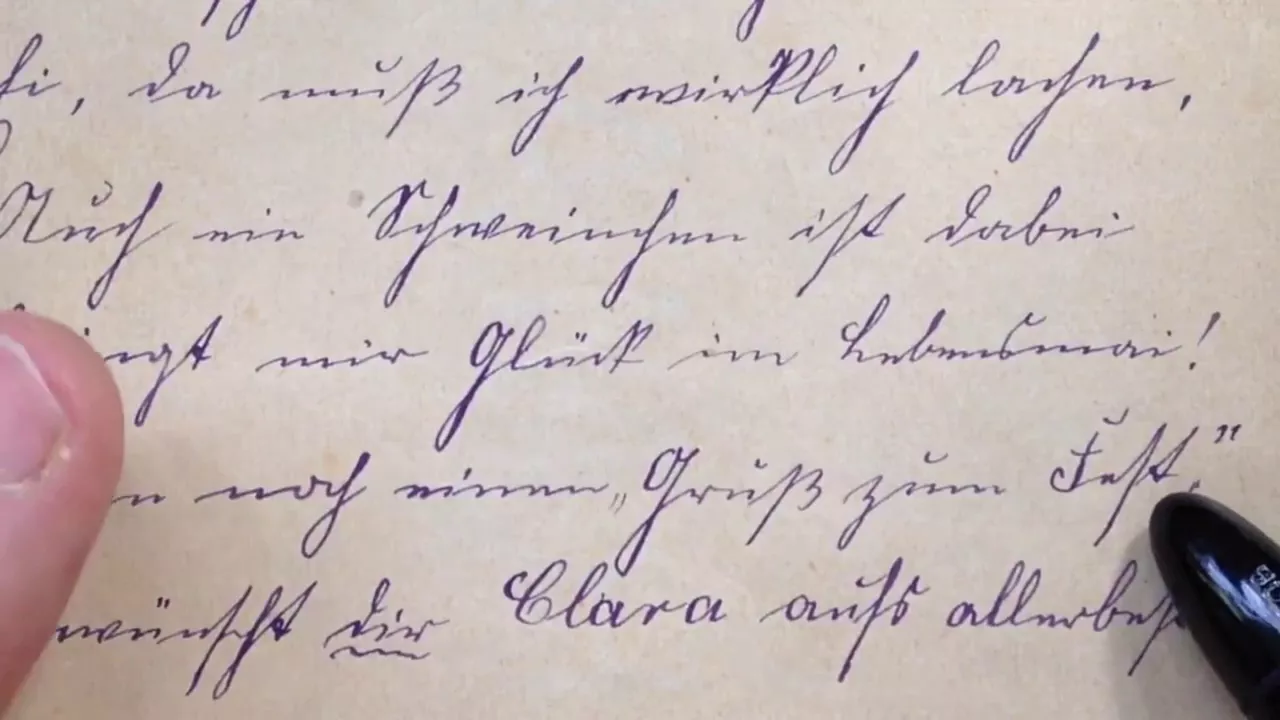 hi, da muß ich wirklich lachen,
Auch ein Schweinchen ist dabei
mir Glück im Lebensmai!
noch einen „Gruß zum Fest,”
wünscht dir Clara aufs